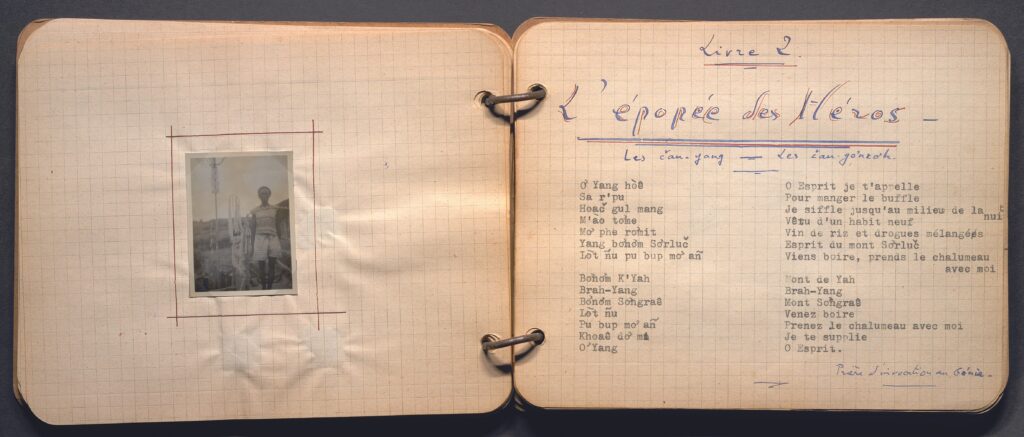 Livre 2.
L'épopée des Héros -
Les čau-yang — Les čau-gónroh.
O' Yang hòê
Sa r'pu
Hoač gul mang
M'ao tome
Mơ phe rohit
Yang bơhơm Sơrluč
Lơt ñu pu bup mơ añ
Bơhơm K'Yah
Brah-Yang
Bơhơm Sơngraê
Lơt ñu
Pu bup mơ añ
Khoaê dơ mi
O'Yang
O Esprit je t'appelle
Pour manger le buffle
Je siffle jusqu'au milieu de la nuit
Vêtu d'un habit neuf
Vin de riz et drogues mélangées
Esprit du mont Sơrluč
Viens boire, prends le chalumeau
avec moi
Mont de Yah
Brah-Yang
Mont Sơngraê
Venez boire
Prenez le chalumeau avec moi
Je te supplie
O Esprit.
Prière d'invocation au Génie -